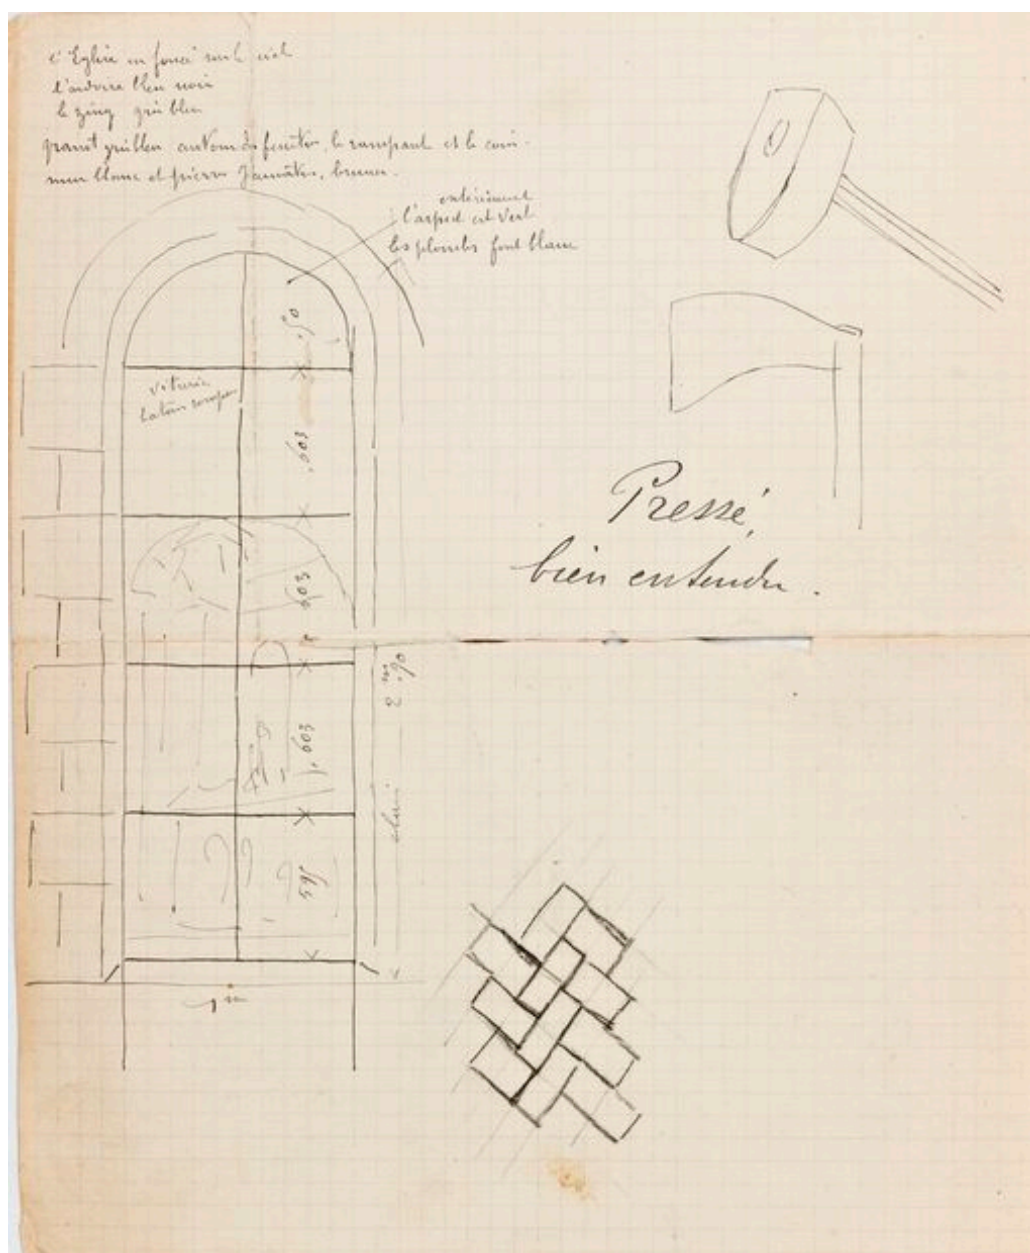 l'Eglise en foncé sur le ciel
l'ardoise bleu noir
le zing gris bleu
granit gris bleu autour des fenêtres, le rampant et le coin.
mur blanc et pierres jaunâtres, brunes.
extérieurement
l'aspect est vert
les plombs font blanc
vitrerie
603
603
603
565
2m,90
1m
Pressé,
bien entendu.